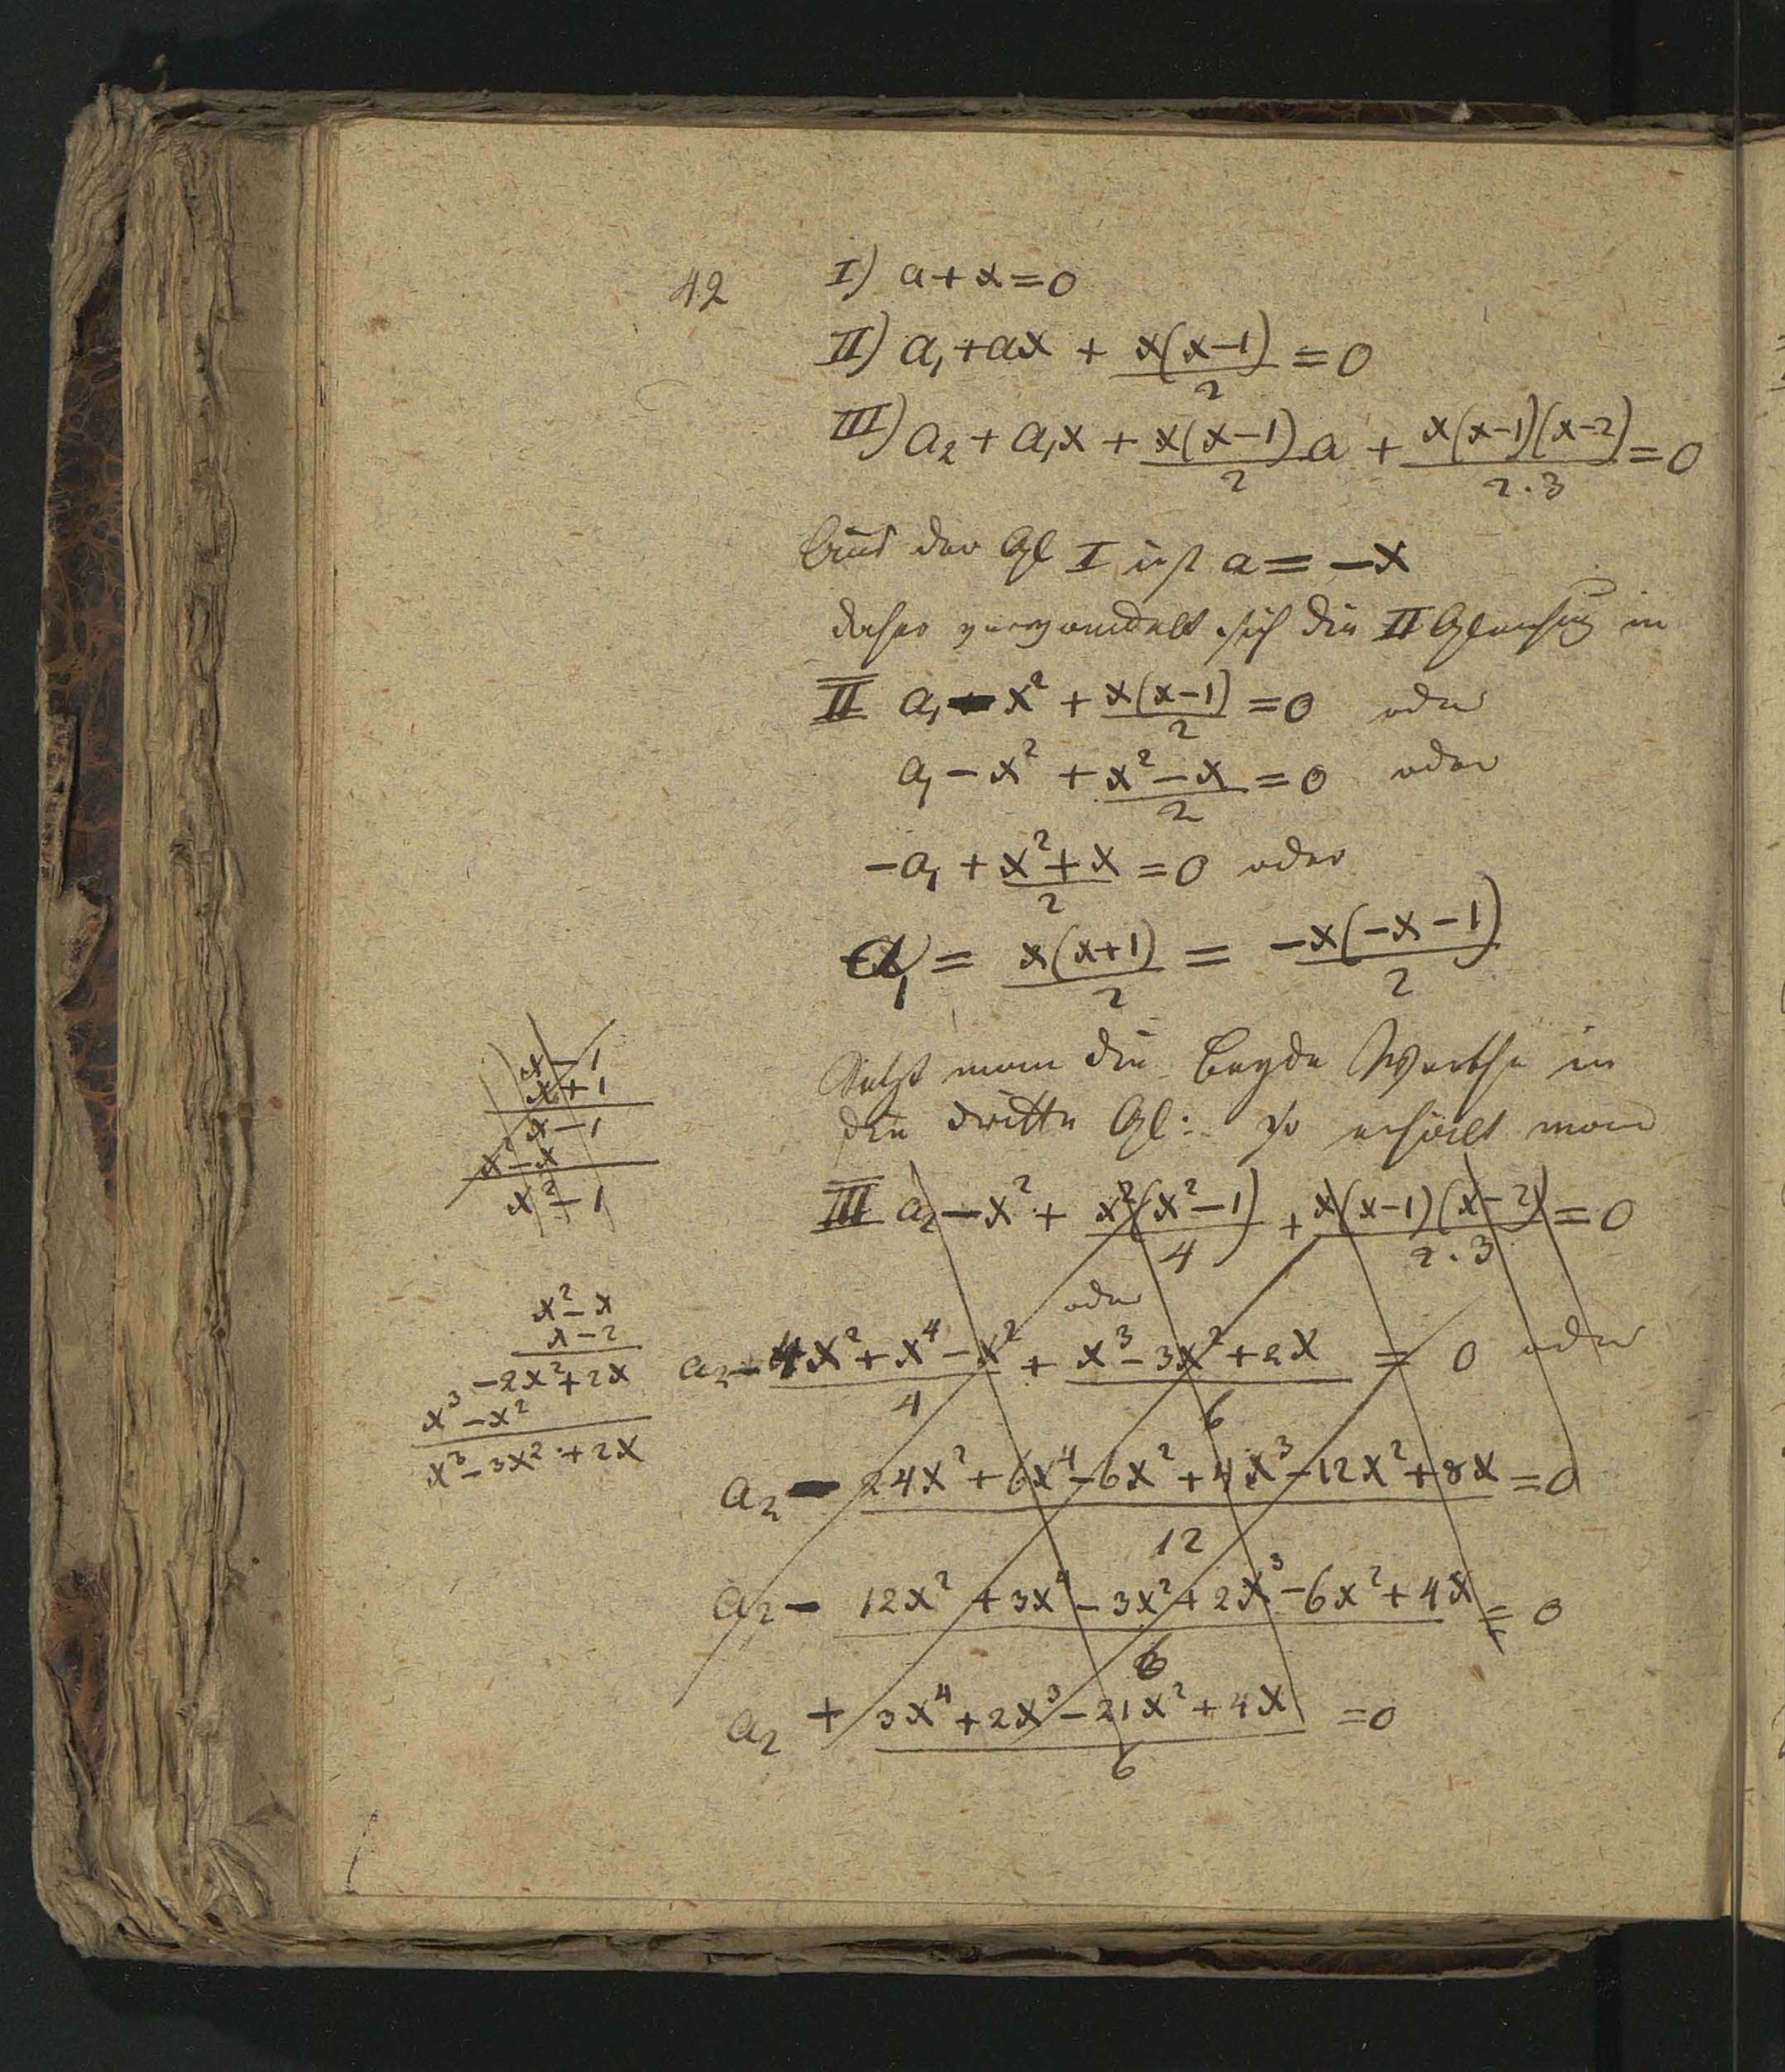 42
I) a + x = 0
II) a₁ + ax + x(x-1)/2 = 0
III) a₂ + a₁x + x(x-1)/2 a + x(x-1)(x-2)/2·3 = 0
Aus der Gl I ist a = -x
daher verwandelt sich die II Gleichug in
II a₁ - x² + x(x-1)/2 = 0 oder
a₁ - x² + x²-x/2 = 0 oder
-a₁ + x²+x/2 = 0 oder
a₁ = x(x+1)/2 = -x(-x-1)/2
Setzt man die beyde Werthe in
die dritte Gl: so erhält man
III a₂ - x² + x²(x²-1)/4 + x(x-1)(x-2)/2·3 = 0
oder
a₂ - 4x²+x⁴-x²/4 + x³-3x²+2x/6 = 0 oder
a₂ - 24x²+6x⁴-6x²+4x³-12x²+8x/12 = 0
a₂ - 12x²+3x⁴-3x²+2x³-6x²+4x/6 = 0
a₂ + 3x⁴+2x³-21x²+4x/6 = 0
x-1
x+1
x-1
x²-x
x²-1
x²-x
x-2
-2x²+2x
x³-x²
x³-3x²+2x